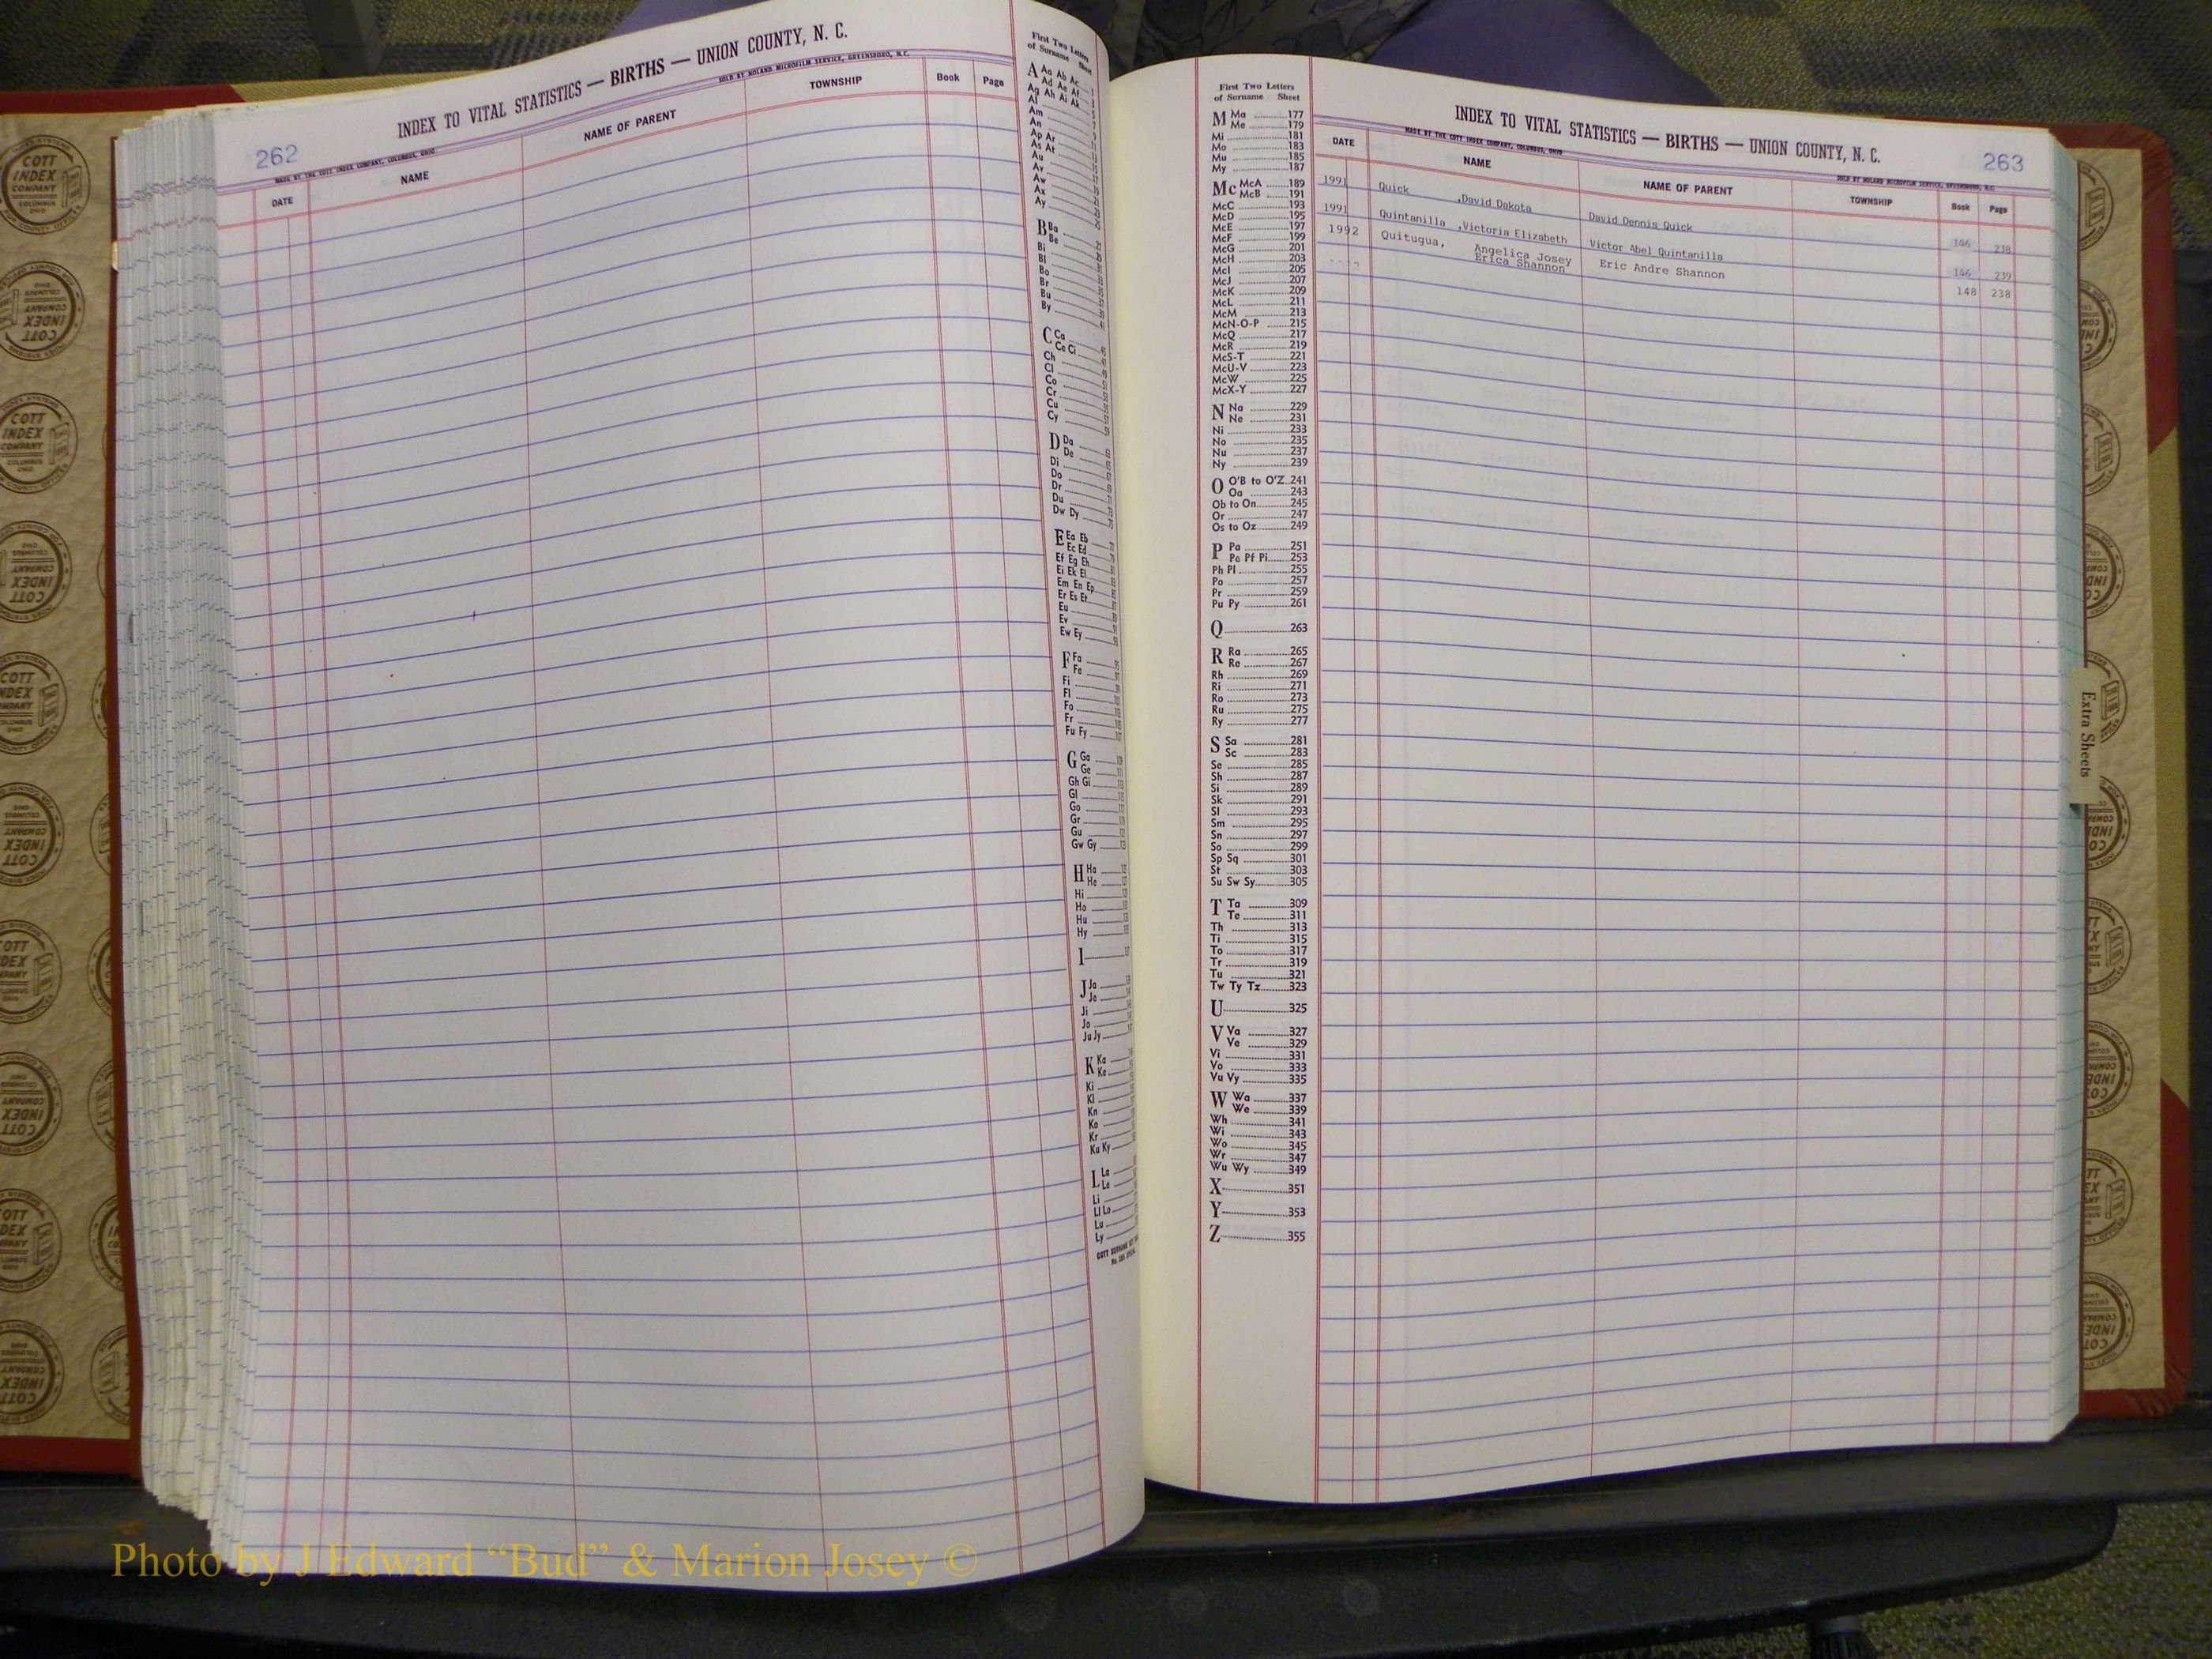 262
INDEX TO VITAL STATISTICS — BIRTHS — UNION COUNTY, N. C.
MADE BY THE COTT INDEX COMPANY, COLUMBUS, OHIO
SOLD BY NOLAND MICROFILM SERVICE, GREENSBORO, N.C.
DATE NAME NAME OF PARENT TOWNSHIP Book Page
First Two Letters
of Surname Sheet
A Aa Ab Ac
Ad Ae Af
Ag Ah Ai Ak
Al
Am
An
Ap Ar
As At
Au
Av
Aw
Ax
Ay
B Ba
Be
Bi
Bl
Bo
Br
Bu
By
C Ca
Ce Ci
Ch
Cl
Co
Cr
Cu
Cy
D Da
De
Di
Do
Dr
Du
Dw Dy
E Ea Eb
Ec Ed
Ef Eg Eh
Ei Ek El
Em En Ep
Er Es Et
Eu
Ev
Ew Ey
F Fa
Fe
Fi
Fl
Fo
Fr
Fu Fy
G Ga
Ge
Gh Gi
Gl
Go
Gr
Gu
Gw Gy
H Ha
He
Hi
Ho
Hu
Hy
I
J Ja
Je
Ji
Jo
Ju Jy
K Ka
Ke
Ki
Kl
Kn
Ko
Kr
Ku Ky
L La
Le
Li
Ll Lo
Lu
Ly
First Two Letters
of Surname Sheet
M Ma 177
Me 179
Mi 181
Mo 183
Mu 185
My 187
Mc McA 189
McB 191
McC 193
McD 195
McE 197
McF 199
McG 201
McH 203
McI 205
McJ 207
McK 209
McL 211
McM 213
McN-O-P 215
McQ 217
McR 219
McS-T 221
McU-V 223
McW 225
McX-Y 227
N Na 229
Ne 231
Ni 233
No 235
Nu 237
Ny 239
O O'B to O'Z 241
Oa 243
Ob to On 245
Or 247
Os to Oz 249
P Pa 251
Pe Pf Pi 253
Ph Pl 255
Po 257
Pr 259
Pu Py 261
Q 263
R Ra 265
Re 267
Rh 269
Ri 271
Ro 273
Ru 275
Ry 277
S Sa 281
Sc 283
Se 285
Sh 287
Si 289
Sk 291
Sl 293
Sm 295
Sn 297
So 299
Sp Sq 301
St 303
Su Sw Sy 305
T Ta 309
Te 311
Th 313
Ti 315
To 317
Tr 319
Tu 321
Tw Ty Tz 323
U 325
V Va 327
Ve 329
Vi 331
Vo 333
Vu Vy 335
W Wa 337
We 339
Wh 341
Wi 343
Wo 345
Wr 347
Wu Wy 349
X 351
Y 353
Z 355
INDEX TO VITAL STATISTICS — BIRTHS — UNION COUNTY, N. C.
263
MADE BY THE COTT INDEX COMPANY, COLUMBUS, OHIO
SOLD BY NOLAND MICROFILM SERVICE, GREENSBORO, N.C.
DATE NAME NAME OF PARENT TOWNSHIP Book Page
1991 Quick ,David Dakota David Dennis Quick 146 238
1991 Quintanilla ,Victoria Elizabeth Victor Abel Quintanilla 146 239
1992 Quitugua, Angelica Josey Eric Andre Shannon 148 238
Erica Shannon
Extra Sheets
COTT
INDEX
COMPANY
COLUMBUS
OHIO
Photo by J Edward “Bud” & Marion Josey ©